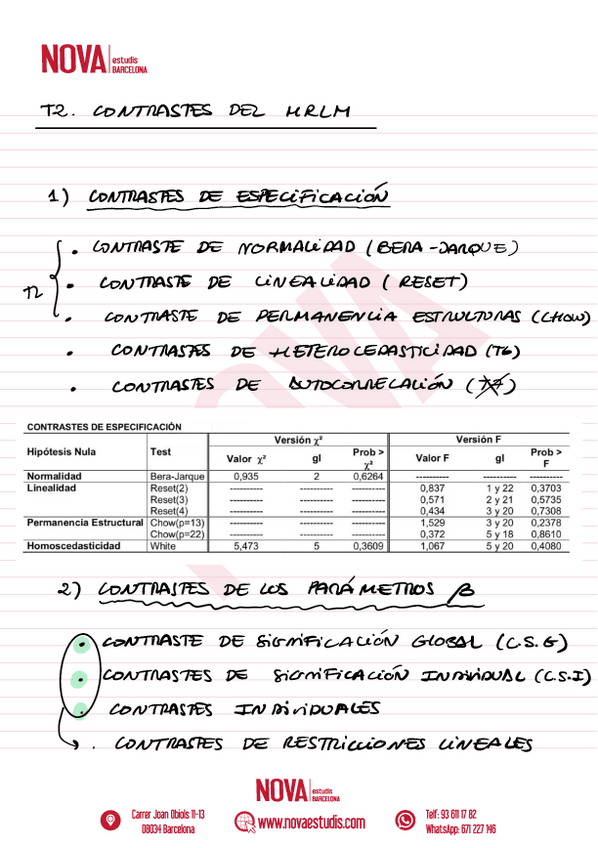 NOVA estudis BARCELONA
T2. CONTRASTES DEL MRLM
1) CONTRASTES DE ESPECIFICACIÓN
T2
• CONTRASTE DE NORMALIDAD (BERA-JARQUE)
• CONTRASTE DE LINEALIDAD (RESET)
• CONTRASTE DE PERMANENCIA ESTRUCTURAS (CHOW)
• CONTRASTES DE HETEROCEDASTICIDAD (T6)
• CONTRASTES DE AUTOCORRELACIÓN
CONTRASTES DE ESPECIFICACIÓN
Hipótesis Nula Test Versión χ² Versión F
Valor χ² gl Prob > χ² Valor F gl Prob > F
Normalidad Bera-Jarque 0,935 2 0,6264 ---------- ---------- ----------
Linealidad Reset(2) ---------- ---------- ---------- 0,837 1 y 22 0,3703
Reset(3) ---------- ---------- ---------- 0,571 2 y 21 0,5735
Reset(4) ---------- ---------- ---------- 0,434 3 y 20 0,7308
Permanencia Estructural Chow(p=13) ---------- ---------- ---------- 1,529 3 y 20 0,2378
Chow(p=22) ---------- ---------- ---------- 0,372 5 y 18 0,8610
Homoscedasticidad White 5,473 5 0,3609 1,067 5 y 20 0,4080
2) CONTRASTES DE LOS PARÁMETROS β
• CONTRASTE DE SIGNIFICACIÓN GLOBAL (C.S.G)
• CONTRASTES DE SIGNIFICACIÓN INDIVIDUAL (C.S.I)
• CONTRASTES INDIVIDUALES
. CONTRASTES DE RESTRICCIONES LINEALES
NOVA estudis BARCELONA
Carrer Joan Obiols 11-13
08034 Barcelona
www.novaestudis.com
Telf: 93 611 17 82
WhatsApp: 671 227 146